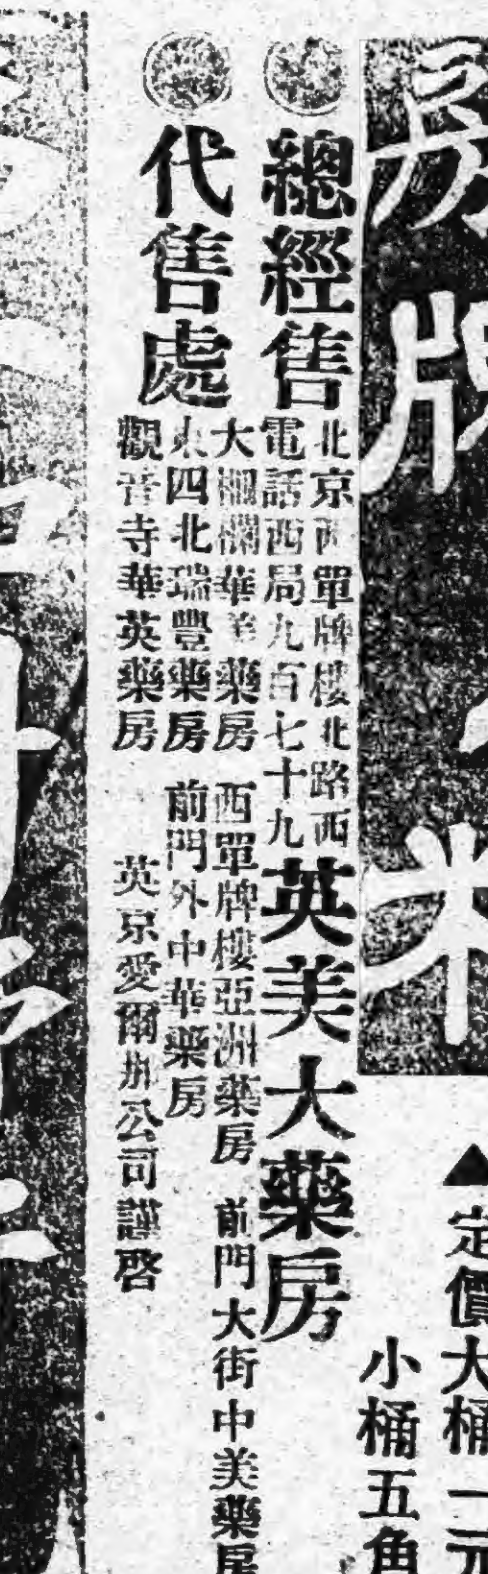 牌
▲定價大桶一元
小桶五角
總經售
北京西單牌樓北路西
電話西局九百七十九
英美大藥房
代售處
大柵欄華羊藥房 西單牌樓亞洲藥房 前門大街中美藥房
東四北瑞豐藥房 前門外中華藥房
觀音寺華英藥房
英京愛爾邦公司謹啓